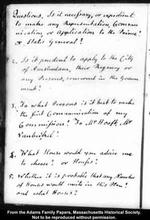 Questions. Is it necessary, or expedient
to make any Representation, Commu-
nication or Application to the Prince,
or States General?
2. Is it prudent to apply to the City
of Amsterdam, their Regency or
any Persons concerned in the Govern-
ment?
3. To what Persons is it best to make
the first Communication of my
Commission? To Mr Hooft, Mr
Vanberckel?
4. What House would you advise me
to choose? or Houses?
5. Whether it is probable that any Number
of Houses would unite in this Plan?
and what Houses?
From the Adams Family Papers, Massachusetts Historical Society.
Not to be reproduced without permission.